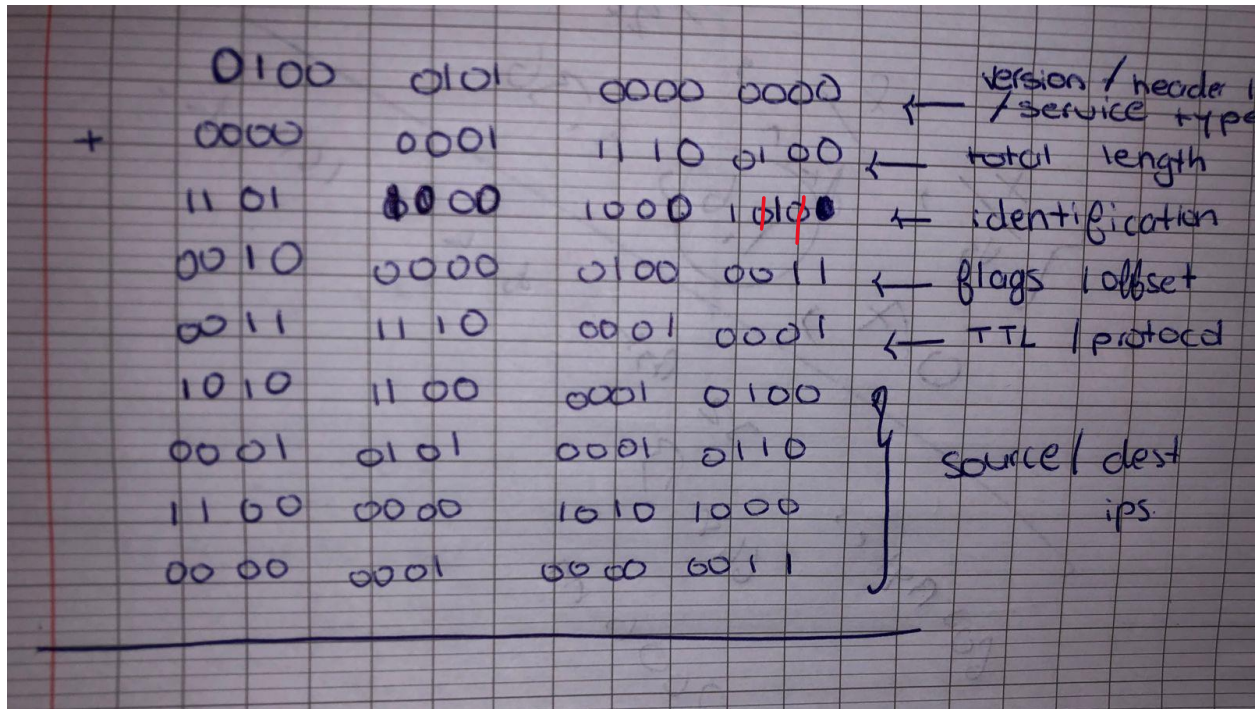 0100 0101 0000 0000 ← version / header l
/ service type
+ 0000 0001 1110 0100 ← total length
1101 0000 1000 1010 ← identification
0010 0000 0100 0011 ← flags / offset
0011 1110 0001 0001 ← TTL / protocol
1010 1100 0001 0100
0001 0101 0001 0110 source / dest
1100 0000 1010 1000 ips.
0000 0001 0000 0011